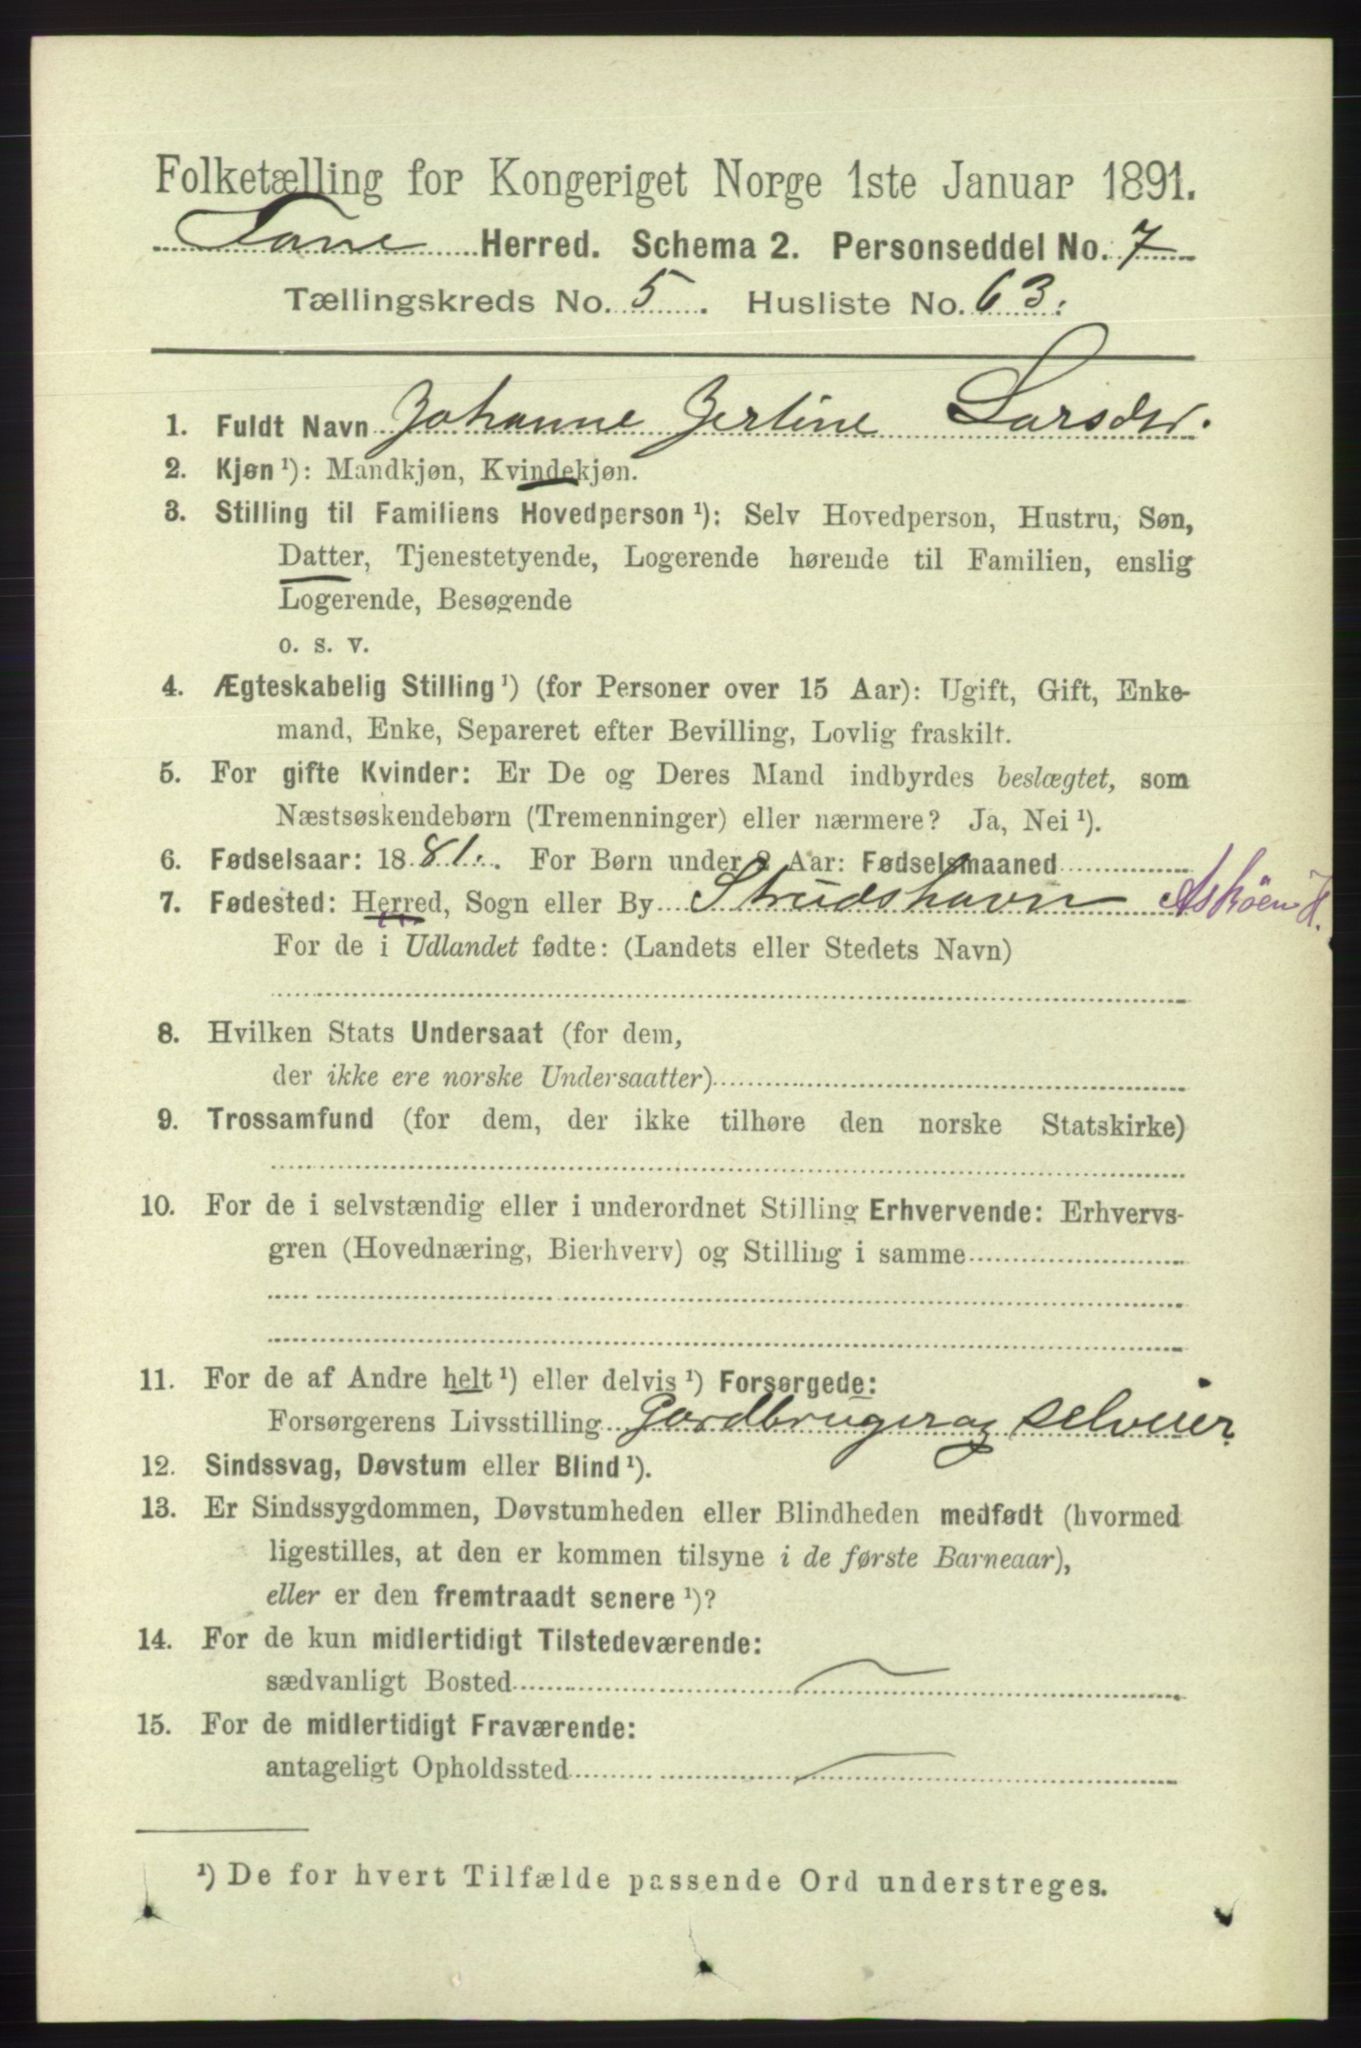 Folketælling for Kongeriget Norge 1ste Januar 1891.
Fane Herred. Schema 2. Personseddel No. 7
Tællingskreds No. 5. Husliste No. 63.
1. Fuldt Navn Johanne Jertine Larsdtr.
2. Kjøn ¹): Mandkjøn, Kvindekjøn.
3. Stilling til Familiens Hovedperson ¹): Selv Hovedperson, Hustru, Søn,
Datter, Tjenestetyende, Logerende hørende til Familien, enslig
Logerende, Besøgende
o. s. v.
4. Ægteskabelig Stilling ¹) (for Personer over 15 Aar): Ugift, Gift, Enke-
mand, Enke, Separeret efter Bevilling, Lovlig fraskilt.
5. For gifte Kvinder: Er De og Deres Mand indbyrdes beslægtet, som
Næstsøskendebørn (Tremenninger) eller nærmere? Ja, Nei ¹).
6. Fødselsaar: 1881. For Børn under 2 Aar: Fødselsmaaned
7. Fødested: Herred, Sogn eller By Strudshavn Askøen H.
For de i Udlandet fødte: (Landets eller Stedets Navn)
8. Hvilken Stats Undersaat (for dem,
der ikke ere norske Undersaatter)
9. Trossamfund (for dem, der ikke tilhøre den norske Statskirke)
10. For de i selvstændig eller i underordnet Stilling Erhvervende: Erhvervs-
gren (Hovednæring, Bierhverv) og Stilling i samme
11. For de af Andre helt ¹) eller delvis ¹) Forsørgede:
Forsørgerens Livsstilling Gardbruger og selveier
12. Sindssvag, Døvstum eller Blind ¹).
13. Er Sindssygdommen, Døvstumheden eller Blindheden medfødt (hvormed
ligestilles, at den er kommen tilsyne i de første Barneaar),
eller er den fremtraadt senere ¹)?
14. For de kun midlertidigt Tilstedeværende:
sædvanligt Bosted
15. For de midlertidigt Fraværende:
antageligt Opholdssted
¹) De for hvert Tilfælde passende Ord understreges.